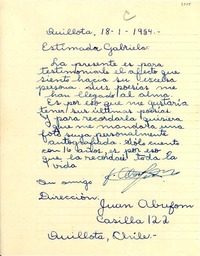 Quillota, 18-1-1954.-
Estimada Gabriela:
La presente es para
testimoniarle el afecto que
siento hacia su excelsa
persona. Sus poesías me
han llegado al alma.
Es por eso que me gustaría
tener sus últimas poesías.
Y para recordarla quisiera
que me mandara una
foto suya personalmente
autografiada. Sólo cuento
con 16 años, es por eso
que la recordaré toda la
vida
Su amigo
Dirección:
Juan Abufom
Casilla 122
Quillota, Chile.-